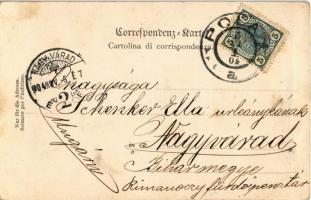 Correspondenz-Karte
Cartolina di corrispondenza
POLA
a
5
NAGY-VÁRAD
Nur für die Adresse.
Soltanto per l'indirizzo.
nagysága
Schenker Ella urleánykának
Nagyvárad
Ungarn
Biharmegye
Rimanoczy fürdőpénztár